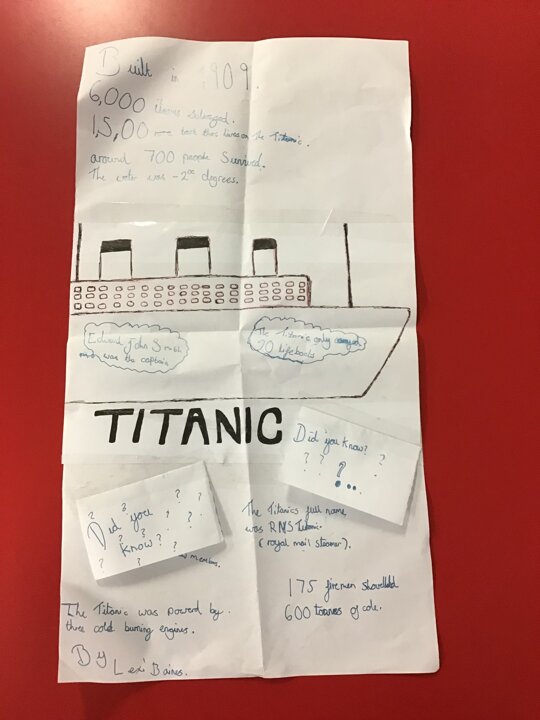 Built in 1909.
6,000 items salvaged.
15,00 lost their lives on the Titanic.
around 700 people Survived.
The water was -2°° degrees.
Edward John Smith
was the captain
The Titanic only carryed
20 lifeboats
TITANIC
Did you know?
? ? ?
?
Did you
know?
members.
The Titanics full name
was RMS Titanic
(royal mail steamer).
175 firemen shovelled
600 tonnes of cole.
The Titanic was powerd by
three cold burning engines.
By Lexi Baines.